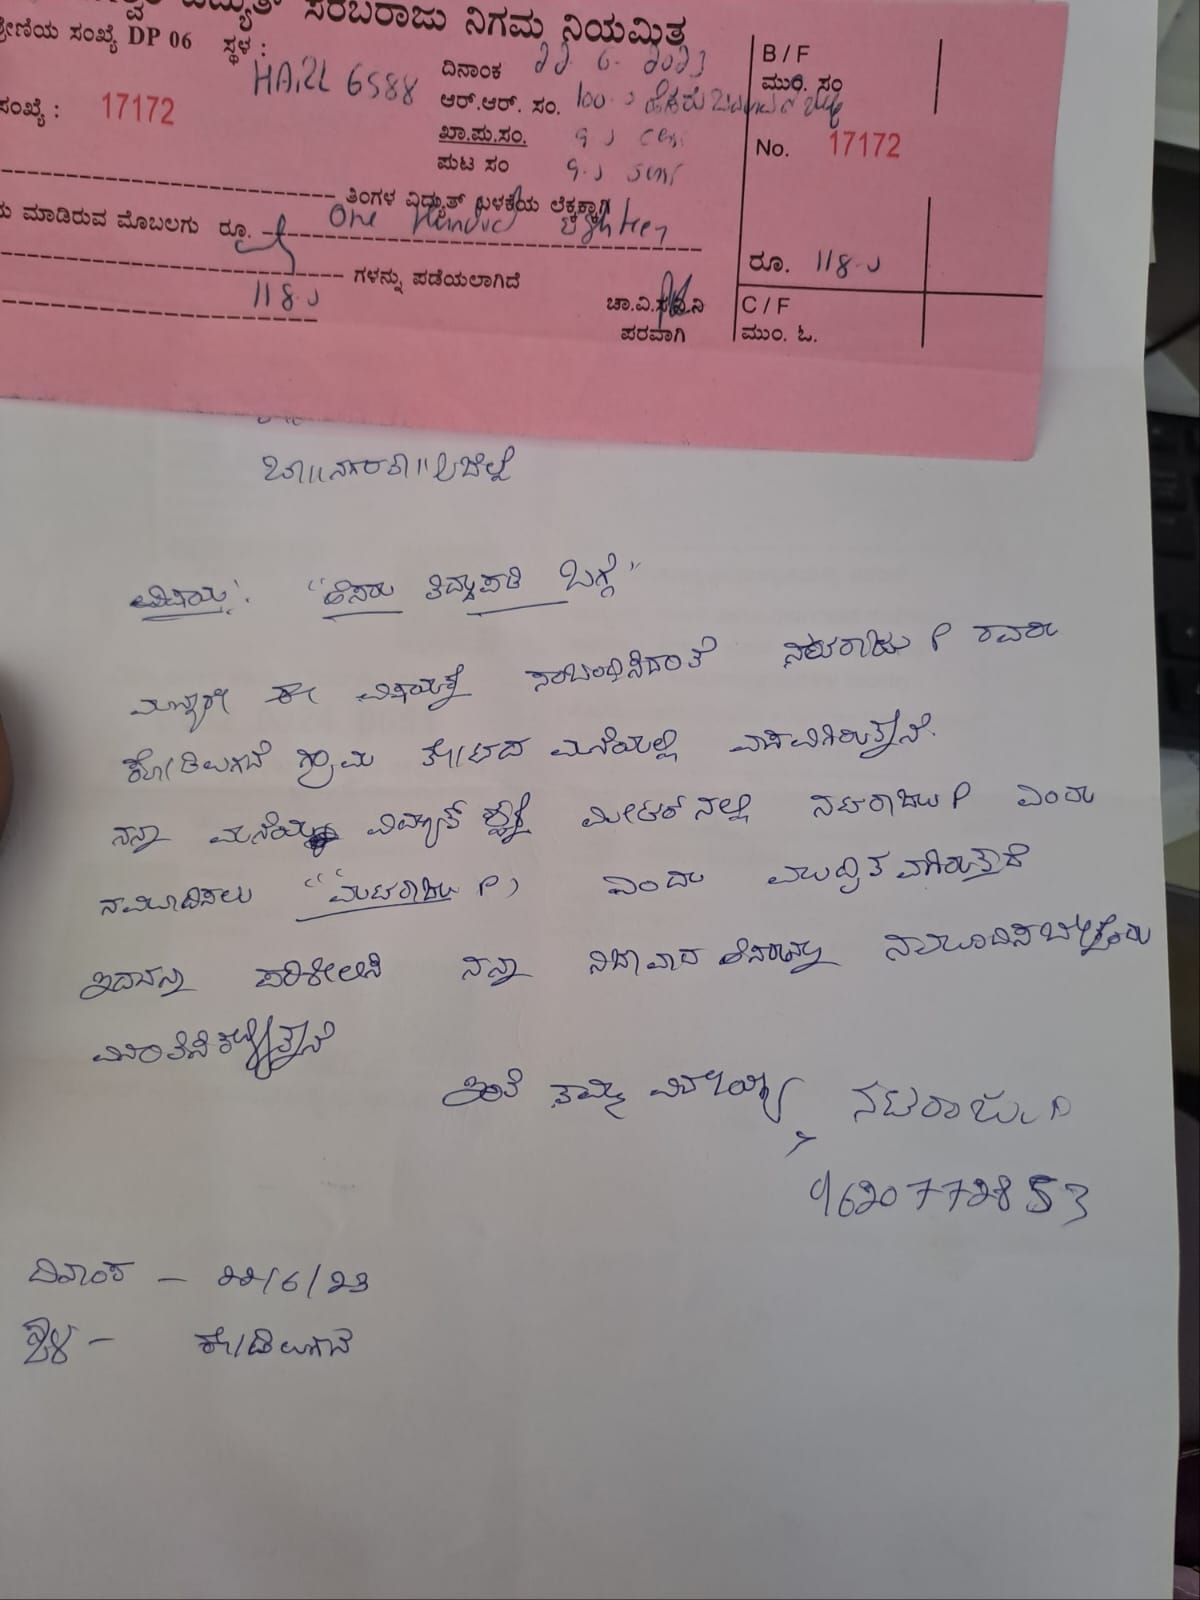 ವಿದ್ಯುತ್ ಸರಬರಾಜು ನಿಗಮ ನಿಯಮಿತ
ಶ್ರೇಣಿಯ ಸಂಖ್ಯೆ DP 06 ಸ್ಥಳ :
HARL 6588
ದಿನಾಂಕ 22.6.2023
ಆರ್.ಆರ್. ಸಂ. 100. ಹೆಸರು ಬದಲಾವಣೆ
ಖಾ.ಪು.ಸಂ. 9.
ಪುಟ ಸಂ 9.
ಸಂಖ್ಯೆ : 17172
ತಿಂಗಳ ವಿದ್ಯುತ್ ಬಳಕೆಯ ಲೆಕ್ಕಕ್ಕಾಗಿ
ಮಾಡಿರುವ ಮೊಬಲಗು ರೂ. One Hundred Eighteen
ಗಳನ್ನು ಪಡೆಯಲಾಗಿದೆ
118.
ಚಾ.ವಿ.ಸ.ನಿ.ನಿ
ಪರವಾಗಿ
B / F
ಮುಂ. ಸಂ
No. 17172
ರೂ. 118.
C / F
ಮುಂ. ಓ.
ಚಾ||ನಗರ ತಾ|| ಜಿಲ್ಲೆ
ವಿಷಯ: "ಹೆಸರು ತಿದ್ದುಪಡಿ ಬಗ್ಗೆ"
ಮಾನ್ಯರೇ ಈ ವಿಷಯಕ್ಕೆ ಸಂಬಂಧಿಸಿದಂತೆ ನಟರಾಜು P ರವರು
ಕೋಡಿಉಗನೆ ಗ್ರಾಮ ತೋಟದ ಮನೆಯಲ್ಲಿ ವಾಸವಾಗಿರುತ್ತೇನೆ.
ನನ್ನ ಮನೆಯ ವಿದ್ಯುತ್ ಮೀಟರ್ ನಲ್ಲಿ ನಟರಾಜು P ಎಂದು
ನಮೂದಿಸಲು "ಮಟರಾಜು P" ಎಂದು ಮುದ್ರಿತವಾಗಿರುತ್ತದೆ
ಇದನ್ನು ಪರಿಶೀಲಿಸಿ ನನ್ನ ನಿಜವಾದ ಹೆಸರನ್ನು ನಮೂದಿಸಬೇಕೆಂದು
ವಿನಂತಿಸಿಕೊಳ್ಳುತ್ತೇನೆ
ಇಂತಿ ತಮ್ಮ ವಿಧೇಯ, ನಟರಾಜು. P
9620772853
ದಿನಾಂಕ - 22/6/23
ಸ್ಥಳ - ಕೋಡಿಉಗನೆ